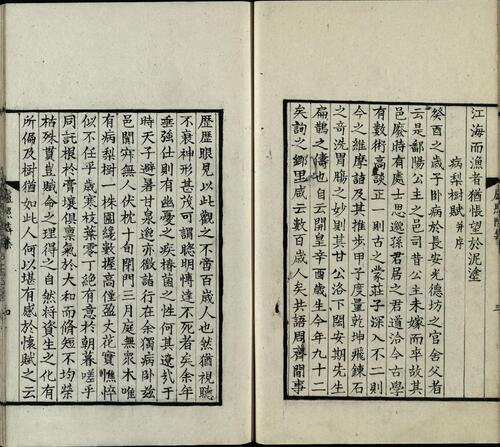 江海而漁者猶悵望於泥塗
病梨樹賦 并序
癸酉之歲予卧病於長安光德坊之官舍父老
云是鄱陽公主之邑司昔公主未嫁而卒故其
邑廢時有處士思邈孫君居之君道洽今古學
有數術高談正一則古之蒙莊子深入不二則
今之維摩詰及其推步甲子度量乾坤飛鍊石
之奇洗胃腸之妙則其甘公洛下閎安期先生
扁鵲之儔也自云開皇辛酉歲生今年九十二
矣詢之鄉里咸云數百歲人矣共語周齊閒事
歷歷眼見以此觀之不啻百歲人也然猶視聽
不衰神形甚茂可謂聰明博達不死者矣余年
垂強仕則有幽憂之疾椿菌之性何其遼哉于
時天子避暑甘泉邈亦徵詣行在余獨病卧兹
邑闃寂無人伏枕十旬閉門三月庭無衆木唯
有病梨樹一株圍纔數握高僅盈丈花實憔悴
似不任乎歲寒枝葉零丁絶有意於朝暮嗟乎
同託根於膏壤俱禀氣於大和而脩短不均榮
枯殊貫豈賦命之理得之自然將資生之化有
所偏及樹猶如此人何以堪有感於懷賦之云